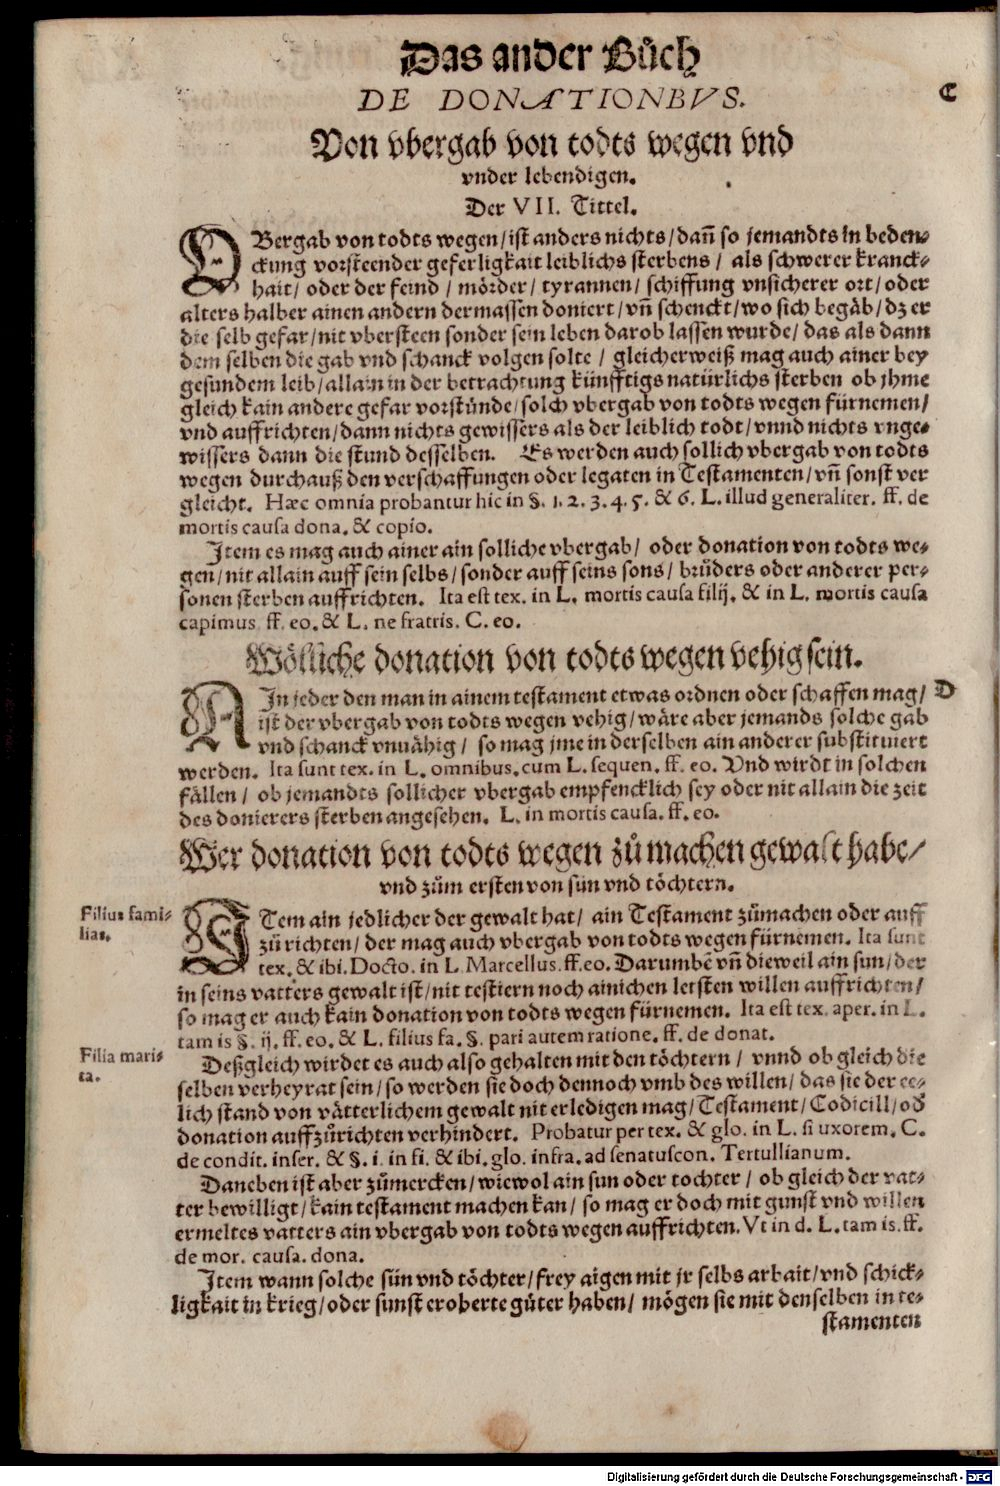 Das ander Bůch
DE DONATIONBVS.
C
Von vbergab von todts wegen vnd
vnder lebendigen.
Der VII. Tittel.
VBergab von todts wegen/ist anders nichts/dañ so jemandts in beden-
ckung vorsteender geferligkait leiblichs sterbens/ als schwerer kranck-
hait/ oder der feind/ mörder/ tyrannen/ schiffung vnsicherer ort/ oder
alters halber ainen andern dermassen doniert/ vñ schenckt/ wo sich begäb/ dz er
die selb gefar/nit vbersteen sonder sein leben darob lassen wurde/ das als dann
dem selben die gab vnd schanck volgen solte/ gleicherweiß mag auch ainer bey
gesundem leib/allain in der betrachtung künfftigs natürlichs sterben ob jhme
gleich kain andere gefar vorstünde/solch vbergab von todts wegen fürnemen/
vnd auffrichten/dann nichts gewissers als der leiblich todt/vnnd nichts vnge-
wissers dann die stund desselben. Es werden auch sollich vbergab von todts
wegen durchauß den verschaffungen oder legaten in Testamenten/vñ sonst ver
gleicht. Hæc omnia probantur hic in §. 1. 2. 3. 4. 5. & 6. L. illud generaliter. ff. de
mortis causa dona. & copio.
Item es mag auch ainer ain solliche vbergab/ oder donation von todts we-
gen/nit allain auff sein selbs/sonder auff seins sons/ brůders oder anderer per-
sonen sterben auffrichten. Ita est tex. in L. mortis causa filij. & in L. mortis causa
capimus ff. eo. & L. ne fratris. C. eo.
Wölliche donation von todts wegen vehig sein.
D
AIn jeder den man in ainem testament etwas ordnen oder schaffen mag/
ist der vbergab von todts wegen vehig/wäre aber jemands solche gab
vnd schanck vnuähig/ so mag jme in derselben ain anderer substituiert
werden. Ita sunt tex. in L. omnibus. cum L. sequen. ff. eo. Vnd wirdt in solchen
fällen/ ob jemandts sollicher vbergab empfencklich sey oder nit allain die zeit
des donierers sterben angesehen. L. in mortis causa. ff. eo.
Wer donation von todts wegen zů machen gewalt habe/
vnd zům ersten von sün vnd töchtern.
Filius fami-
lias.
ITem ain jedlicher der gewalt hat/ ain Testament zůmachen oder auff
zů richten/ der mag auch vbergab von todts wegen fürnemen. Ita sunt
tex. & ibi. Docto. in L. Marcellus. ff. eo. Darumbē vñ dieweil ain sun/der
in seins vatters gewalt ist/nit testiern noch ainichen letsten willen auffrichten/
so mag er auch kain donation von todts wegen fürnemen. Ita est tex. aper. in L.
tam is §. ij. ff. eo. & L. filius fa. §. pari autem ratione. ff. de donat.
Filia mari-
ta.
Deßgleich wirdet es auch also gehalten mit den töchtern/ vnnd ob gleich die
selben verheyrat sein/so werden sie doch dennoch vmb des willen/ das sie der ee-
lich stand von vätterlichem gewalt nit erledigen mag/Testament/Codicill/oď
donation auffzůrichten verhindert. Probatur per tex. & glo. in L. si uxorem. C.
de condit. inser. & §. i. in fi. & ibi. glo. infra. ad senatuscon. Tertullianum.
Daneben ist aber zůmercken/wiewol ain sun oder tochter/ ob gleich der vat-
ter bewilligt/kain testament machen kan/ so mag er doch mit gunst vnd willen
ermeltes vatters ain vbergab von todts wegen auffrichten. Vt in d. L. tam is. ff.
de mor. causa. dona.
Item wann solche sün vnd töchter/frey aigen mit jr selbs arbait/vnd schick-
ligkait in krieg/oder sunst eroberte güter haben/ mögen sie mit denselben in te-
stamenten
Digitalisierung gefördert durch die Deutsche Forschungsgemeinschaft - DFG